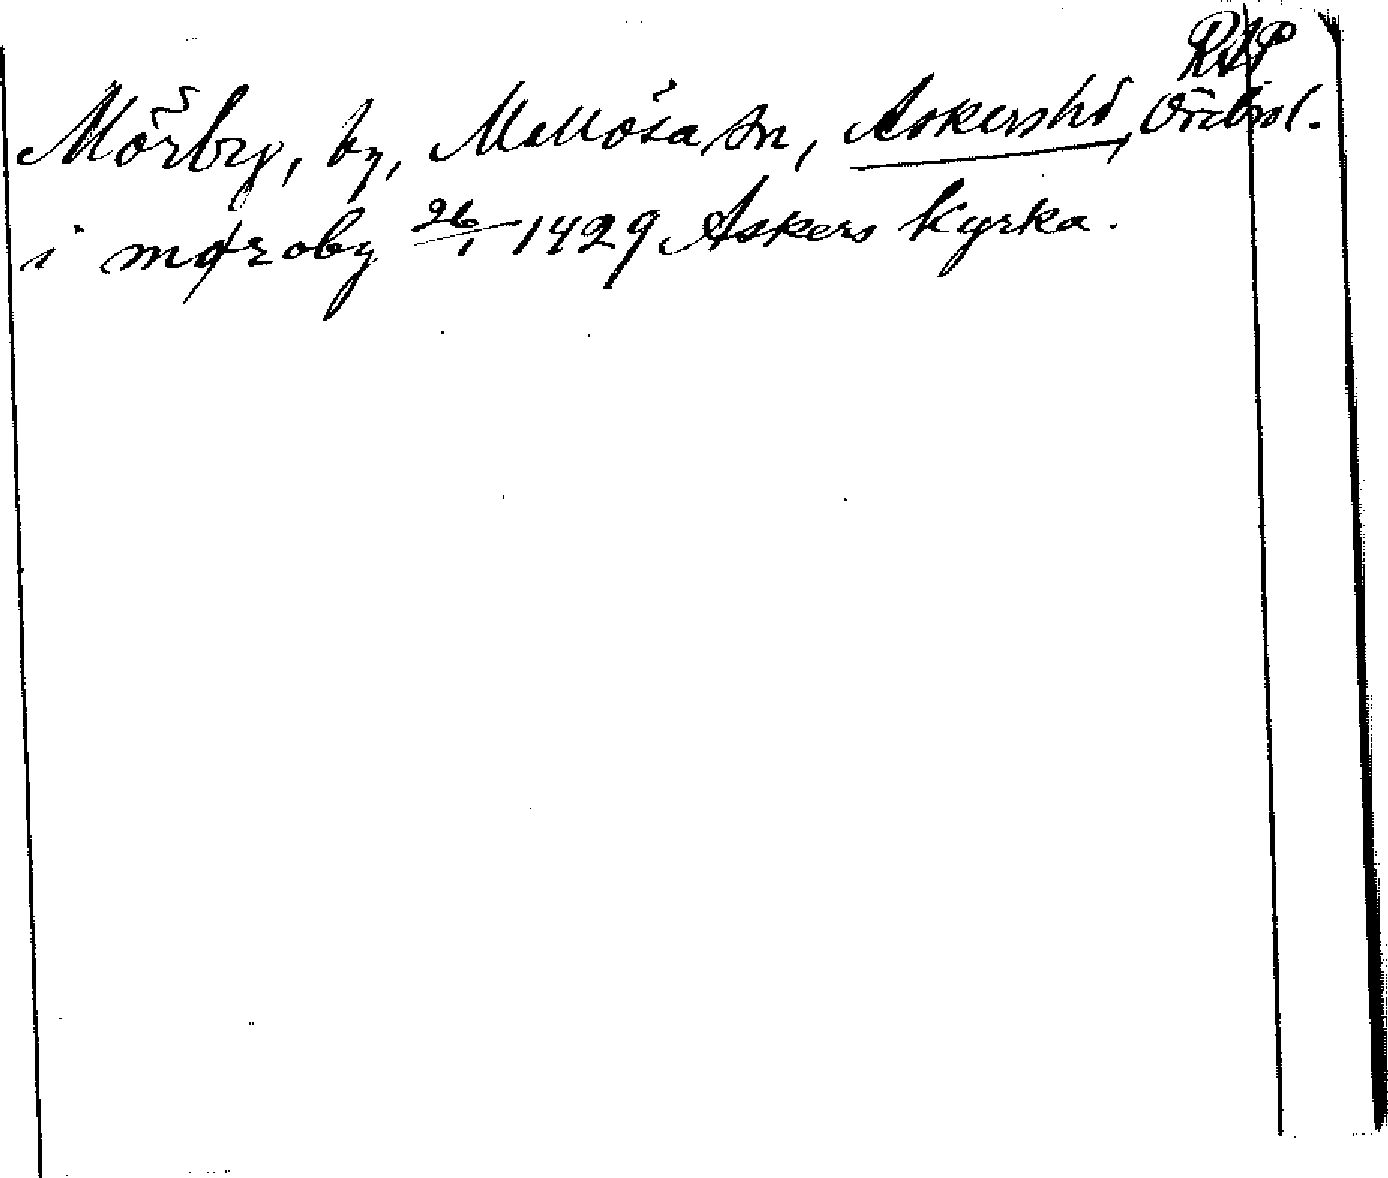 RAP
Mörby, by, Mellösa sn, Askers hd, Örebro l.
i møroby 26/1 1429 Askers kyrka.